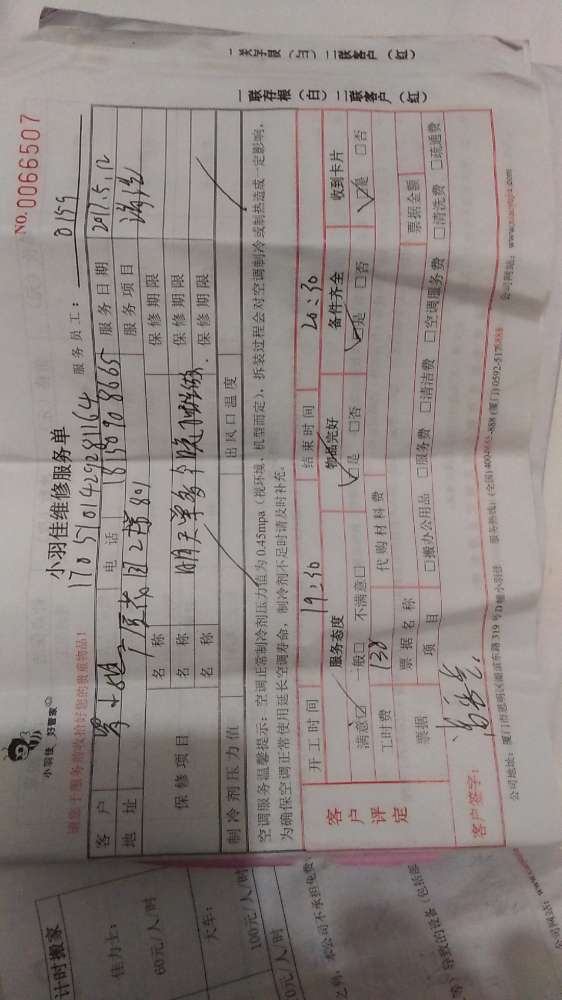 小羽佳维修服务单
NO. 0066507
小羽佳 好管家
服务员工： 0159
请您于服务前收拾好您的贵重物品！
1705101429281164
客户 电话 18150908665 服务日期 2017.5.12
地址 2 801 服务项目
保修项目 名称 保修期限
名称 保修期限
名称 保修期限
制冷剂压力值 出风口温度
空调服务温馨提示：空调正常制冷剂压力值为0.45mpa（视环境、机型而定），拆装过程会对空调制冷或制热造成一定影响，
为确保空调正常使用延长空调寿命，制冷剂不足时请及时补充。
客户评定
开工时间 19:30 结束时间 20:30
服务态度 物品完好 备件齐全 收到卡片
满意☑ 一般□ 不满意□ ☑是 □否 ☑是 □否 ☑是 □否
工时费 130 代购材料费
票据 票据名称 票据金额
项目 □搬办公用品 □服务费 □清洁费 □空调服务费 □清洗费 □疏通费
客户签字：
公司地址：厦门市思明区湖滨东路319号 服务热线：
公司网站：
一联存根（白） 二联客户（红）
一联存根（白） 二联客户（红）
计时搬家
佳力士：
60元/人/时
大车：
100元/人/时
0元/人/时
本公司不承担免费
导致的设备（包括部